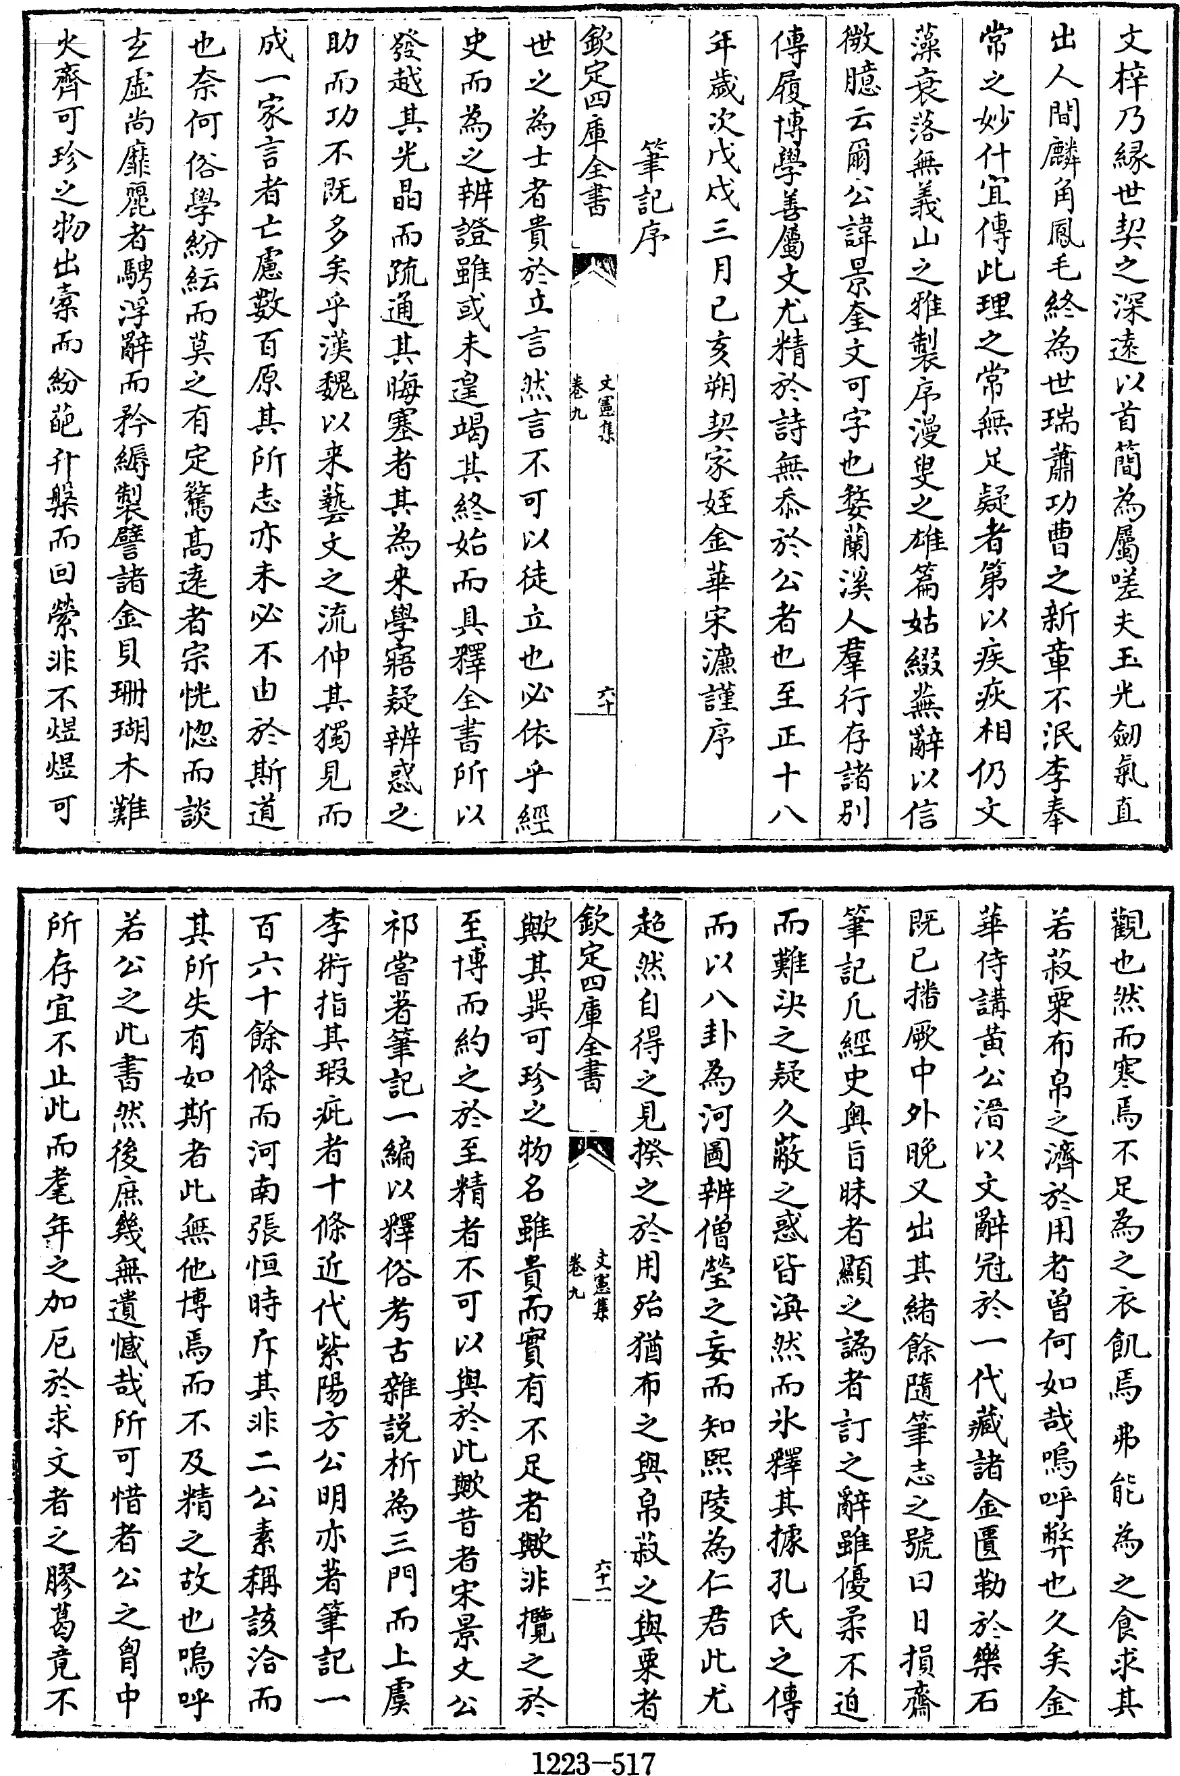 文梓乃縁世契之深逺以首簡為屬嗟夫玉光劒氣直
出人間麟角鳳毛終為世瑞蕭功曹之新章不泯李奉
常之妙什宜傳此理之常無足疑者第以疾疢相仍文
藻衰落無義山之雅製序漫叟之雄篇姑綴蕪辭以信
微臆云爾公諱景奎文可字也婺蘭溪人羣行存諸别
傳履博學善屬文尤精於詩無忝於公者也至正十八
年歲次戊戌三月己亥朔契家姪金華宋濂謹序
筆記序
欽定四庫全書
文憲集
卷九
六十
世之為士者貴於立言然言不可以徒立也必依乎經
史而為之辨證雖或未遑竭其終始而具釋全書所以
發越其光晶而疏通其晦塞者其為來學寤疑辨惑之
助而功不既多矣乎漢魏以来藝文之流伸其獨見而
成一家言者亡慮數百原其所志亦未必不由於斯道
也奈何俗學紛紜而莫之有定騖髙逺者宗恍惚而談
玄虛尚靡麗者騁浮辭而矜縟製譬諸金貝珊瑚木難
火齊可珍之物出槖而紛葩升槃而回縈非不煜煜可
觀也然而寒焉不足為之衣飢焉弗能為之食求其
若菽粟布帛之濟於用者曽何如哉嗚呼弊也久矣金
華侍講黄公溍以文辭冠於一代藏諸金匱勒於樂石
既已播厥中外晚又出其緒餘隨筆志之號曰日損齋
筆記凡經史奥旨昧者顯之譌者訂之辭雖優柔不迫
而難決之疑久蔽之惑皆渙然而氷釋其據孔氏之傳
而以八卦為河圖辨僧瑩之妄而知熙陵為仁君此尤
超然自得之見揆之於用殆猶布之與帛菽之與粟者
欽定四庫全書
文憲集
卷九
六十一
歟其異可珍之物名雖貴而實有不足者歟非攬之於
至博而約之於至精者不可以與於此歟昔者宋景文公
祁嘗著筆記一編以釋俗考古雜説析為三門而上虞
李衎指其瑕疵者十條近代紫陽方公明亦著筆記一
百六十餘條而河南張恒時斥其非二公素稱該洽而
其所失有如斯者此無他博焉而不及精之故也嗚呼
若公之此書然後庶幾無遺憾哉所可惜者公之胷中
所存宜不止此而耄年之加厄於求文者之膠葛竟不
1223-517